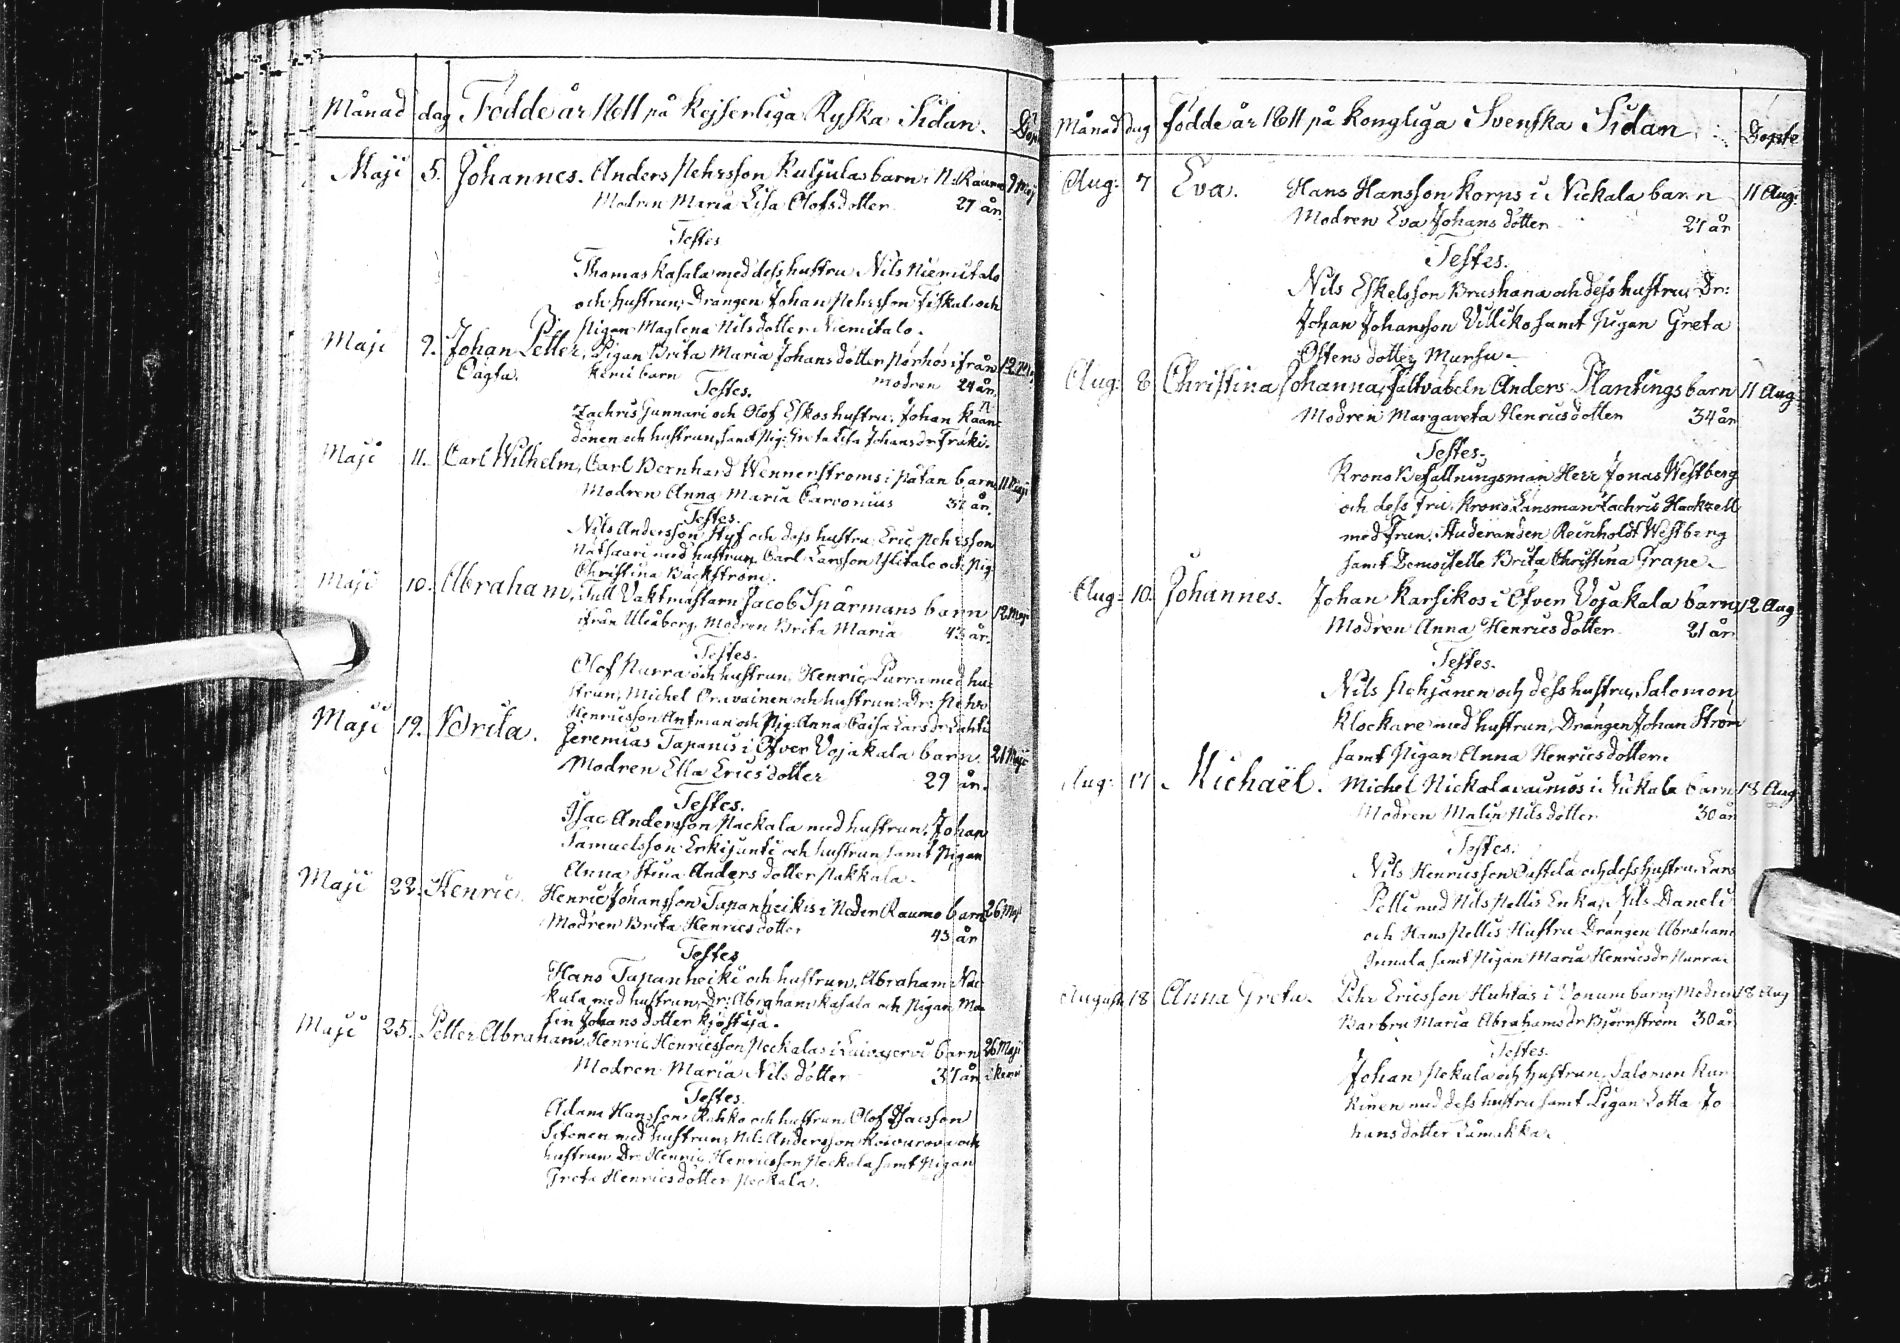 Månad dag Födde år 1811 på Kejserliga Ryska Sidan. Döpt
Maji 5. Johannes. Anders Pehrsson Kuljulas barn i N: Raumo 9 Maij
Modren Maria Lisa Olofsdotter 27 år
Testes
Thomas Kasala med dess hustru Nils Niemitalo
och hustrun, Drängen Johan Pehrsson Fiskal och
Pigan Maglena Nilsdotter Niemitalo.
Maji 9. Johan Petter, Pigan Brita Maria Johansdotter ifrån 12 Maij
Oägta. Kemi barn modren 24 år.
Testes.
Zachris Gunnari och Olof Eskos hustru, Johan Kaan
donen och hustrun, samt Pig: Greta Lisa Johansdr
Maji 11. Carl Wilhelm, Carl Bernhard Wennerströms i barn 11 Maji
Modren Anna Maria Carvonius 32 år.
Testes.
Nils Andersson Hyf och dess hustru, Eric Pehrsson
med hustrun, Carl Larsson Ylitalo och Pig:
Christina Bäckström.
Maji 10. Abraham, Tull Vaktmästarn Jacob Spärmans barn 12 Maij
ifrån Uleåborg, Modren Brita Maria 43 år.
Testes.
Olof Purra och hustrun, Henric Purra med hu
strun, Michel Oravainen och hustrun, Dr: Pehr
Henricsson Antman och Pig: Anna Caisa Larsdr
Maji 19. Brita. Jeremias Tapanis i Öfver Vojakala barn. 21 Maji
Modren Ella Ericsdotter 29 år.
Testes.
Isac Andersson Nackala med hustrun, Johan
Samuelsson Erkijunti och hustrun samt Pigan
Anna Stina Andersdotter Nakkala.
Maji 22. Henric, Henric Johansson Tapanheikis i Neder Raumo barn 26 Maji
Modren Brita Henricsdotter 43 år
Testes
Hans Tapanheiki och hustrun, Abraham
kula med hustrun, Dr: Abraham Kasala och Pigan Ma
lin Johansdotter
Maji 25. Petter Abraham, Henric Henricsson i barn 26 Maji
Modren Maria Nilsdotter 37 år i Kemi
Testes.
Adam Hansson Rahko och hustrun, Olof Isacsson
Sitonen med hustrun, Nils Andersson Koivurova och
hustrun Dr: Henric Henricsson samt Pigan
Greta Henricsdotter
Månad dag Födde år 1811 på Kongliga Svenska Sidan Döpte
Aug: 7 Eva. Hans Hansson Korpis i Nickala barn 11 Aug:
Modren Eva Johansdotter 27 år
Testes.
Nils Eskelsson Brushana och dess hustru, Dr:
Johan Johansson Viliko samt Pigan Greta
Östensdotter Mursu.
Aug: 8 Christina Johanna, Fältväbeln Anders Plantings barn 11 Aug
Modren Margareta Henricsdotter 34 år
Testes.
Krono Befallningsman Herr Jonas Westberg
och dess Fru, Krono Länsman Zachris Hackzell
med Frun, Studeranden Reinholdt Westberg
samt Demoiselle Brita Christina Grape.
Aug: 10. Johannes. Johan Karsikos i Öfver Vojakala barn, 12 Aug
Modren Anna Henricsdotter 21 år
Testes.
Nils Pehjänen och dess hustru, Salomon
Klockare med hustrun, Drängen Johan Ström
samt Pigan Anna Henricsdotter.
Aug: 17 Michaël. Michel i Nickala barn 18 Aug
Modren Malin Nilsdotter 30 år
Testes.
Nils Henricsson och dess hustru, Lars
Pelli med Nils Pellis Enka, Nils Daneli
och Hans Pellis Hustru Drängen Abraham
samt Pigan Maria Henricsdr Purra.
August: 18 Anna Greta. Pehr Ericsson Huhtas i Vonum barn, Modren 18 Aug
Barbru Maria Abrahamsdr Björnström 30 år
Testes.
Johan Nekula och hustrun, Salomon Kur
kinen med dess hustru samt Pigan Lotta Jo
hansdotter